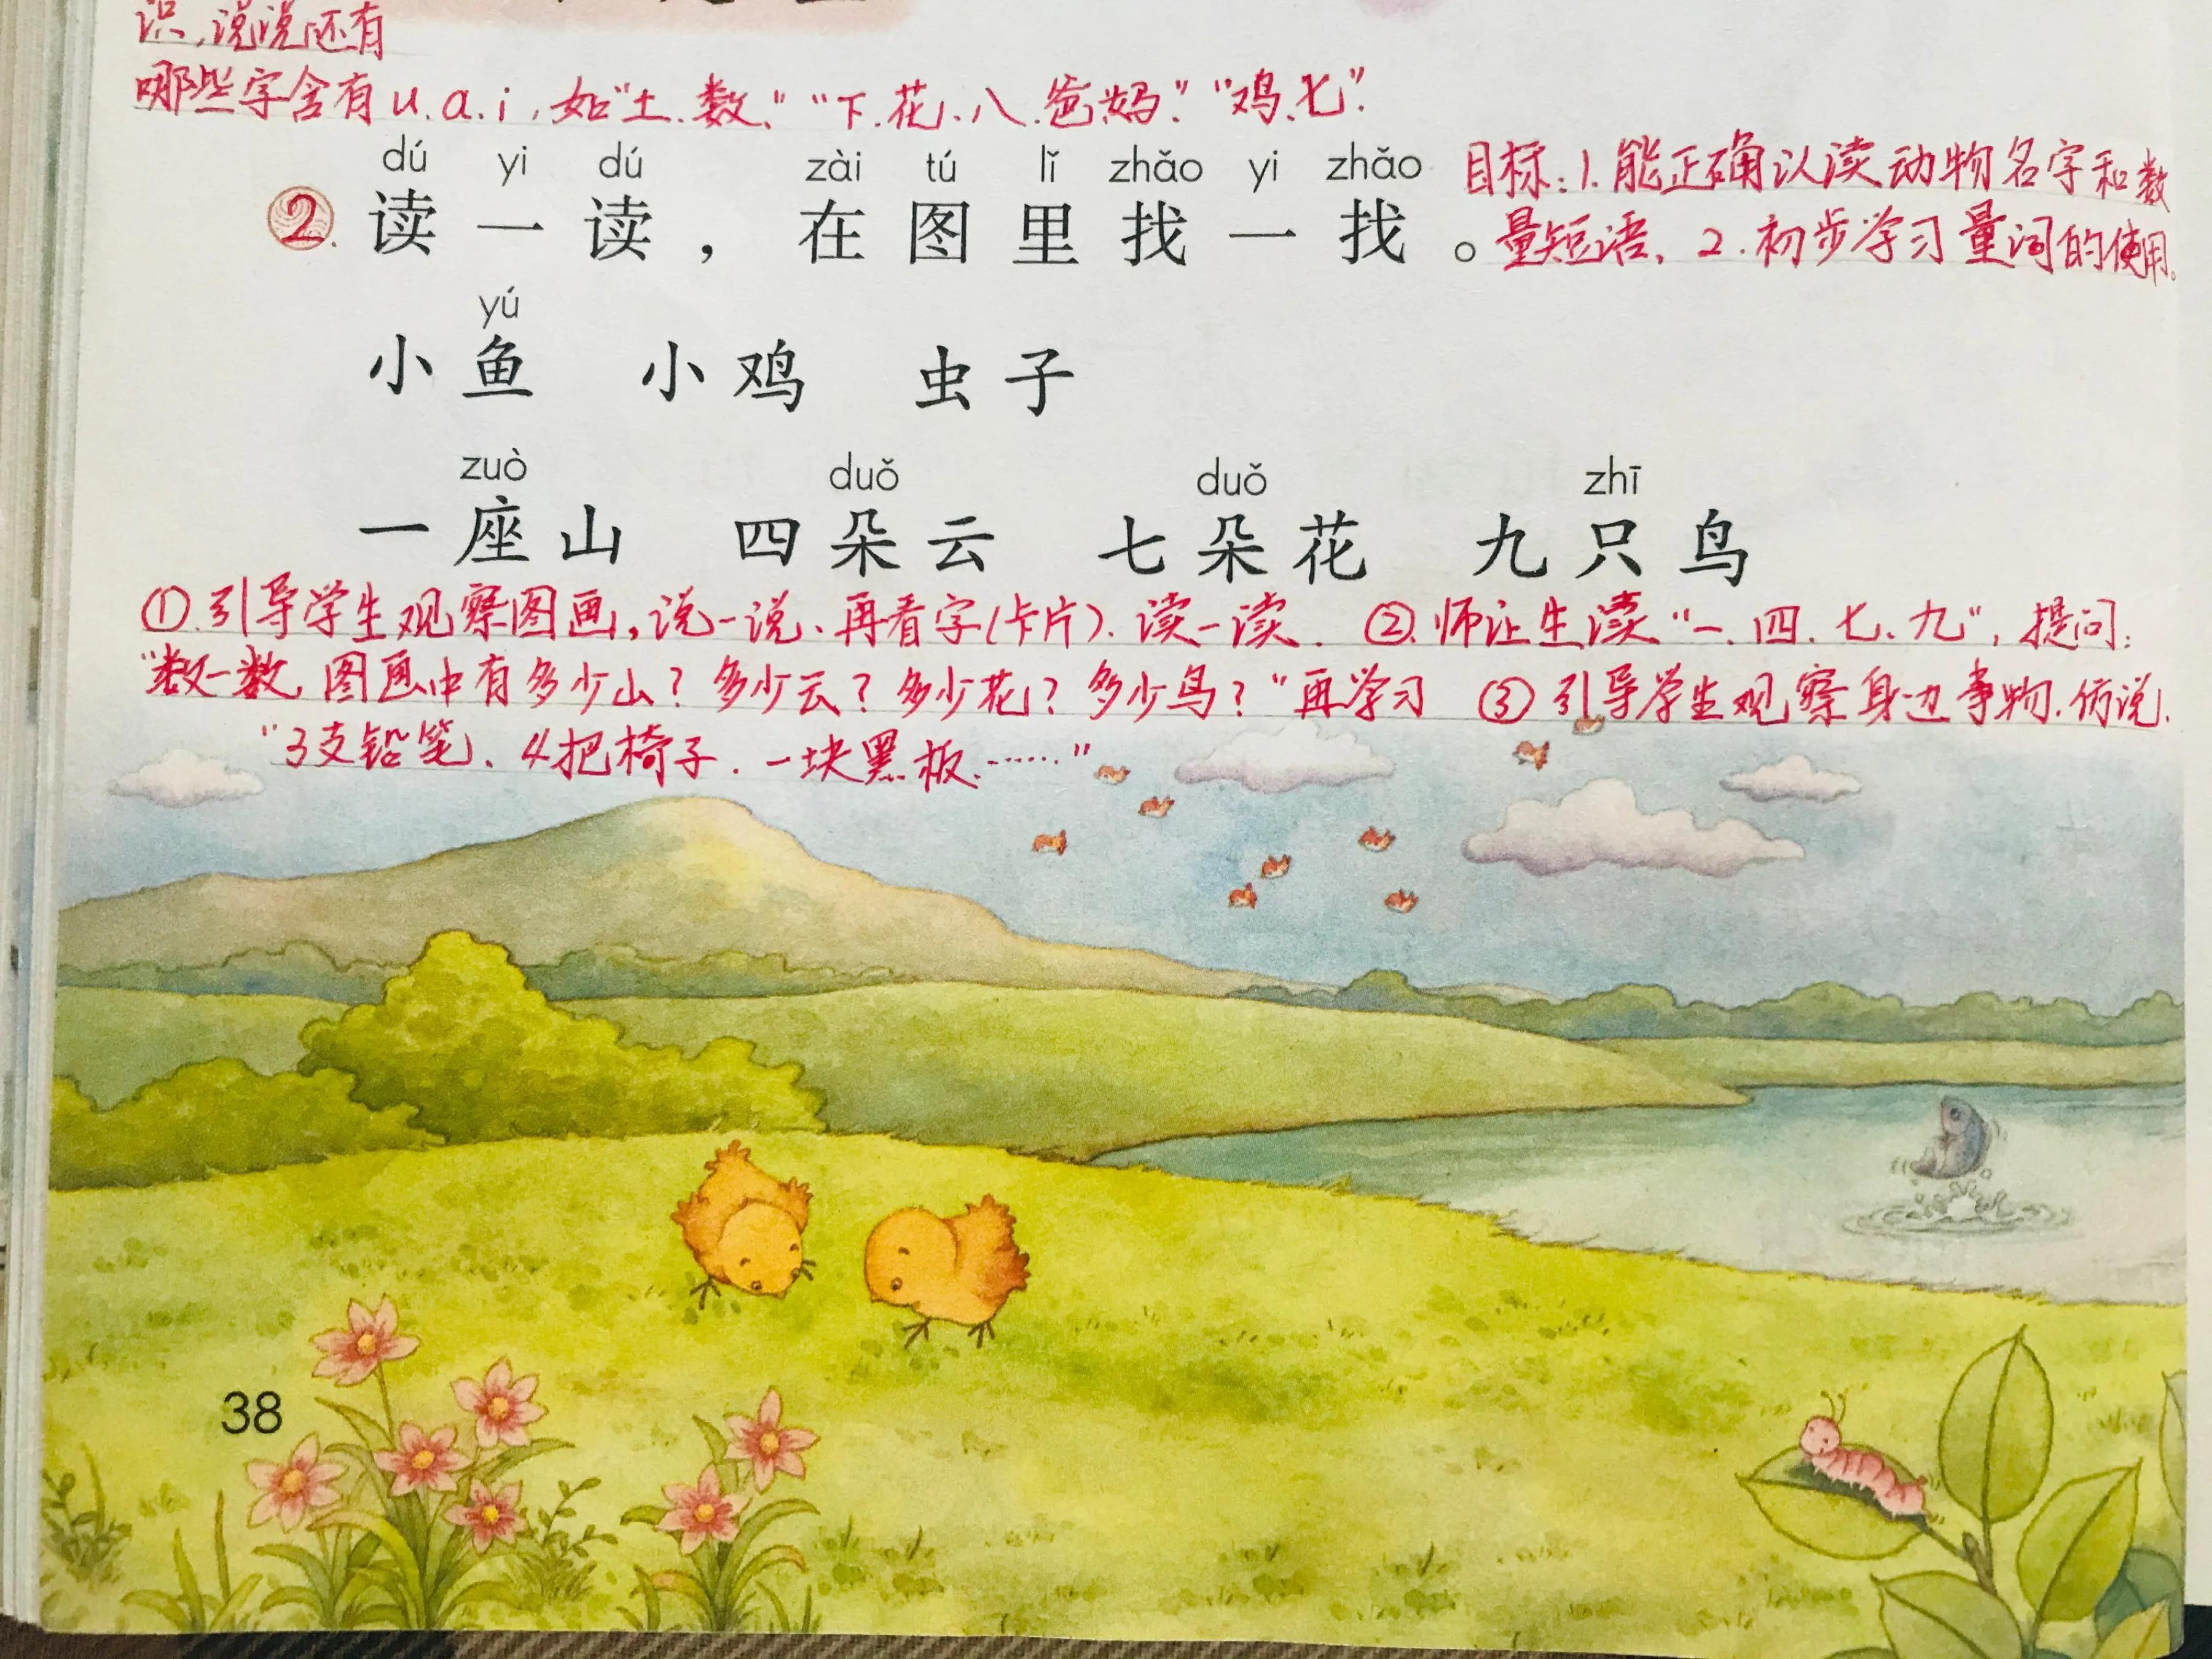 识,说说还有
哪些字含有u.a.i,如"土.数、""下.花.八.爸妈.""鸡.七".
dú yi dú zài tú lǐ zhǎo yi zhǎo
2. 读一读，在图里找一找。
目标:1.能正确认读动物名字和数
量短语, 2.初步学习量词的使用。
yú
小鱼 小鸡 虫子
zuò duǒ duǒ zhī
一座山 四朵云 七朵花 九只鸟
①.引导学生观察图画,说一说、再看字(卡片).读一读. ②.师让生读"一.四.七、九",提问:
"数一数,图画中有多少山?多少云?多少花?多少鸟?"再学习 ③引导学生观察身边事物.仿说.
"3支铅笔、4把椅子.一块黑板……"
38